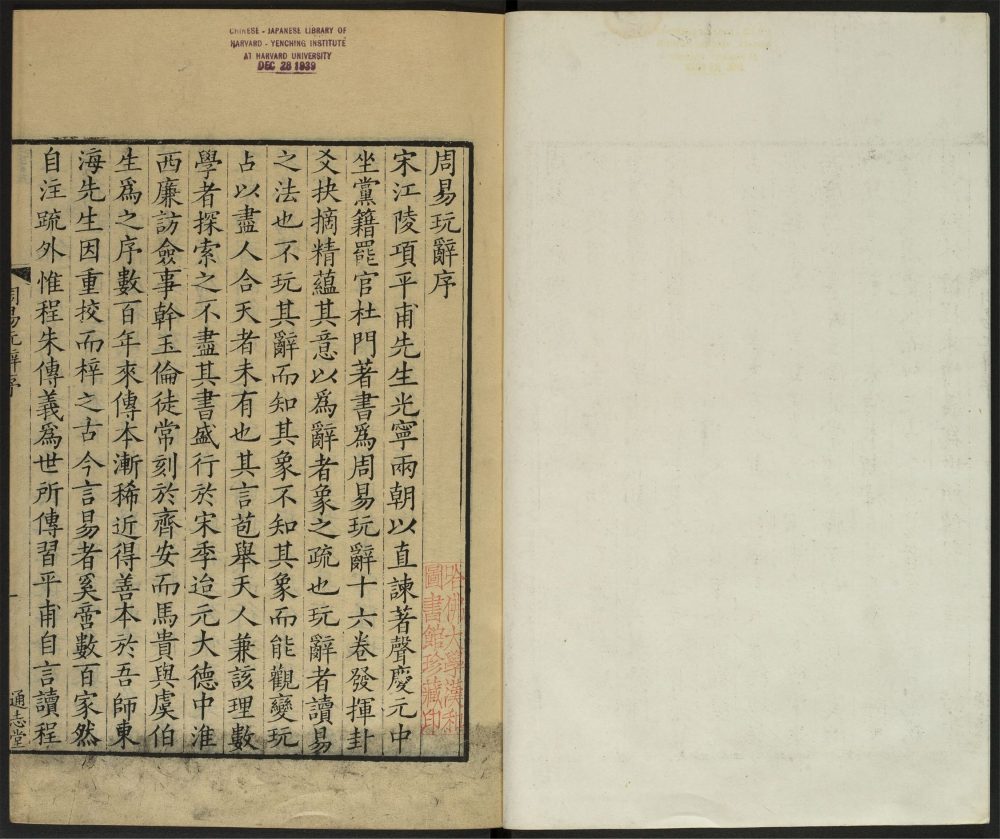 CHINESE - JAPANESE LIBRARY OF
HARVARD - YENCHING INSTITUTE
AT HARVARD UNIVERSITY
DEC 28 1939
周易玩辭序
宋江陵項平甫先生光寧兩朝以直諫著聲慶元中
坐黨籍罷官杜門著書爲周易玩辭十六卷發揮卦
爻抉摘精蘊其意以爲辭者象之疏也玩辭者讀易
之法也不玩其辭而知其象不知其象而能觀變玩
占以盡人合天者未有也其言苞舉天人兼該理數
學者探索之不盡其書盛行於宋季迨元大德中淮
西廉訪僉事幹玉倫徒常刻於齊安而馬貴與虞伯
生爲之序數百年來傳本漸稀近得善本於吾師東
海先生因重挍而梓之古今言易者奚啻數百家然
自注疏外惟程朱傳義爲世所傳習平甫自言讀程
哈佛大學漢和
圖書館珍藏印
周易玩辭序
一
通志堂